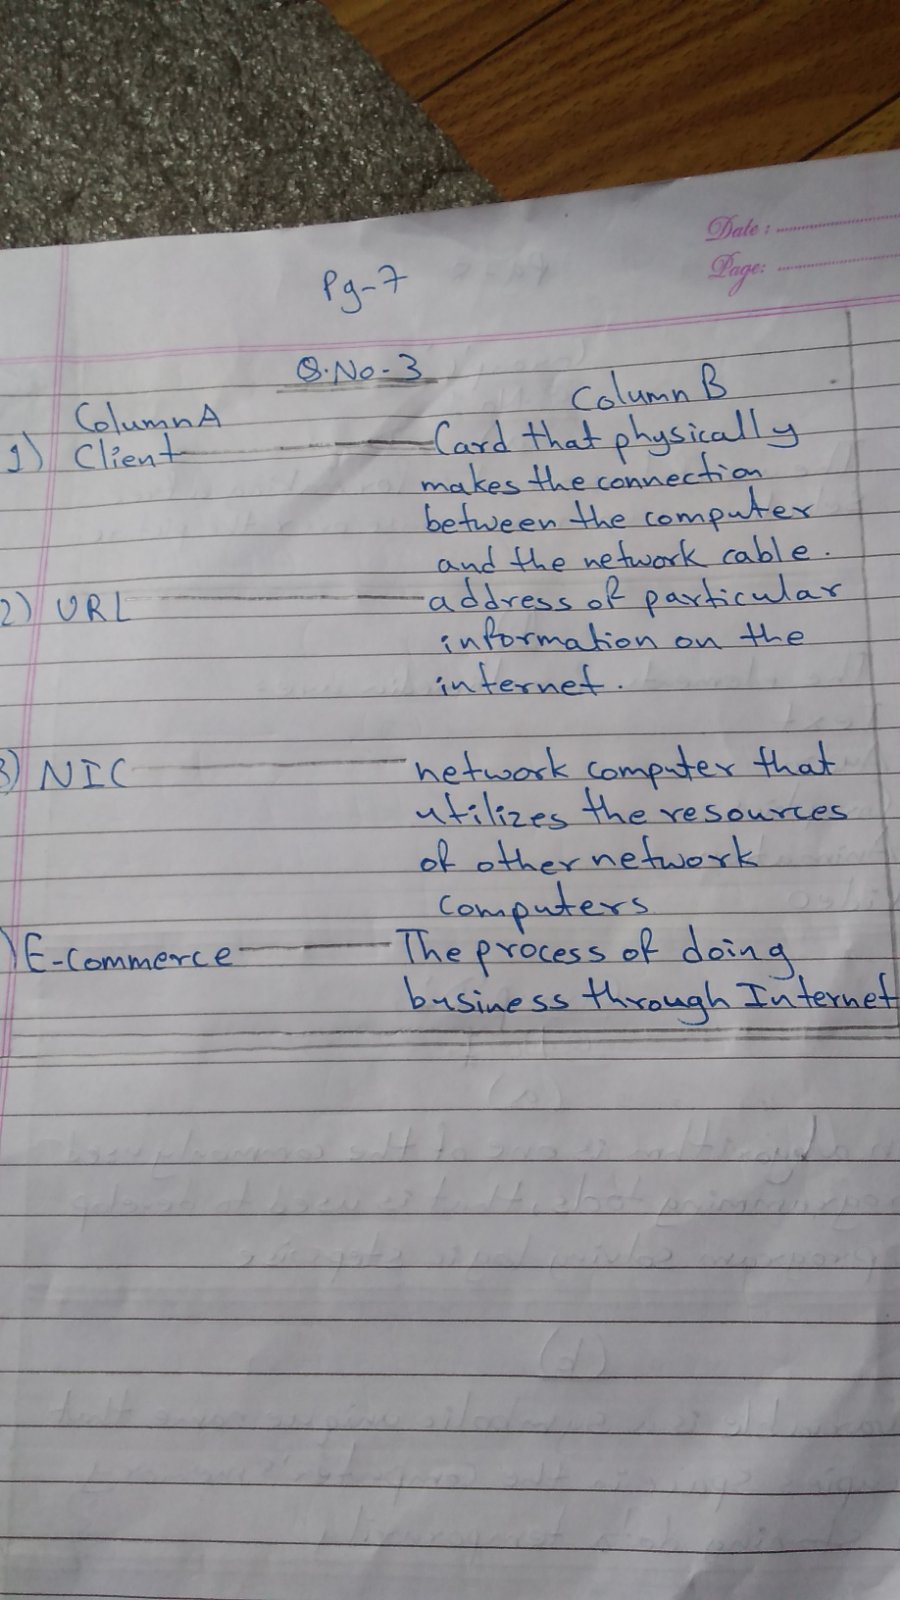 Date:
Page:
Pg-7
Q.No-3
Column A
Column B
1) Client
Card that physically
makes the connection
between the computer
and the network cable.
2) URL
address of particular
information on the
internet.
3) NIC
network computer that
utilizes the resources
of other network
computers
) E-Commerce
The process of doing
business through Internet